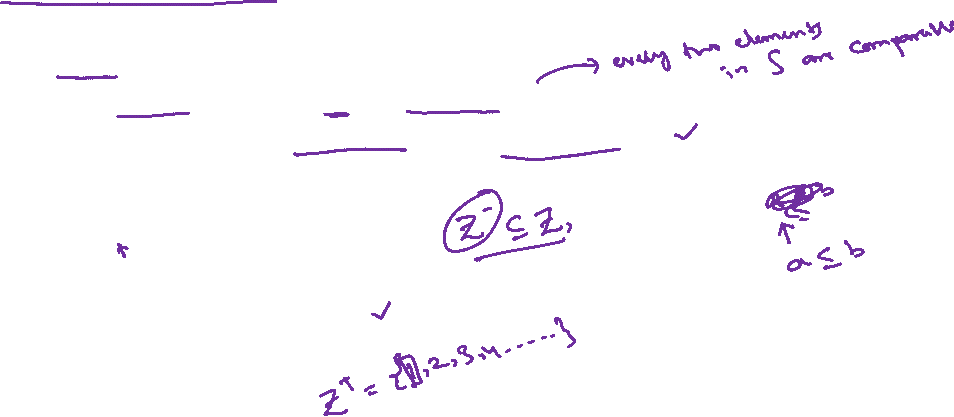 every two elements
in S are comparable
Z⁻ ⊆ Z,
a ≤ b
Z⁺ = {1, 2, 3, 4 ......}